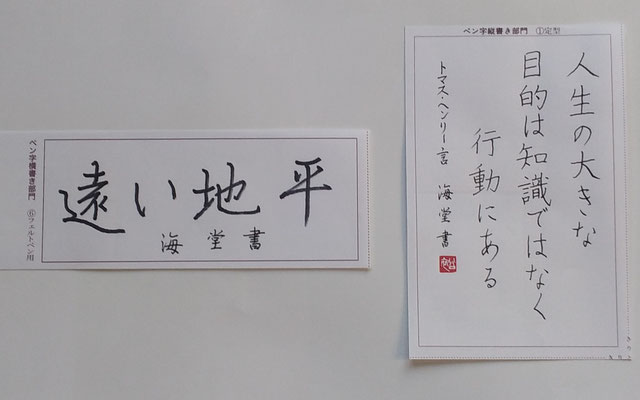 ペン字横書き部門 ⑥フェルトペン用
遠い地平
海堂書
ペン字縦書き部門 ①定型
人生の大きな
目的は知識ではなく
行動にある
トマス・ヘンリー言 海堂書